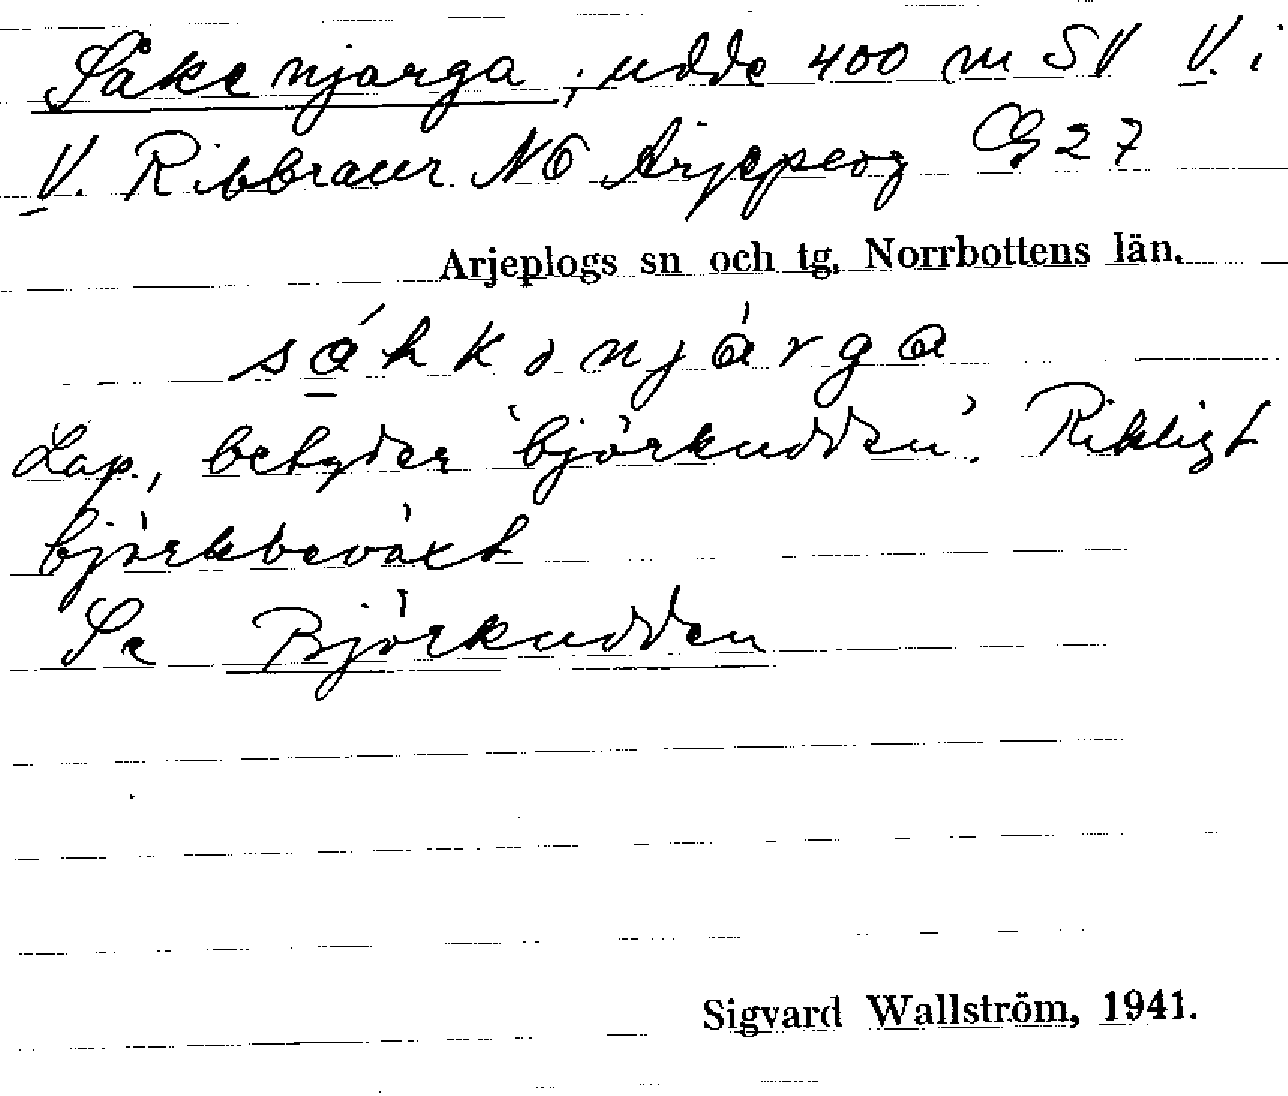 Såkenjarga, udde 400 m SV V. i
V. Ribbraur NO Arjeplog G 27
Arjeplogs sn och tg. Norrbottens län.
sá̱hkənjárga
Lap., betyder 'björkudden'. Rikligt
björkbeväxt
Se Björkudden
Sigvard Wallström, 1941.